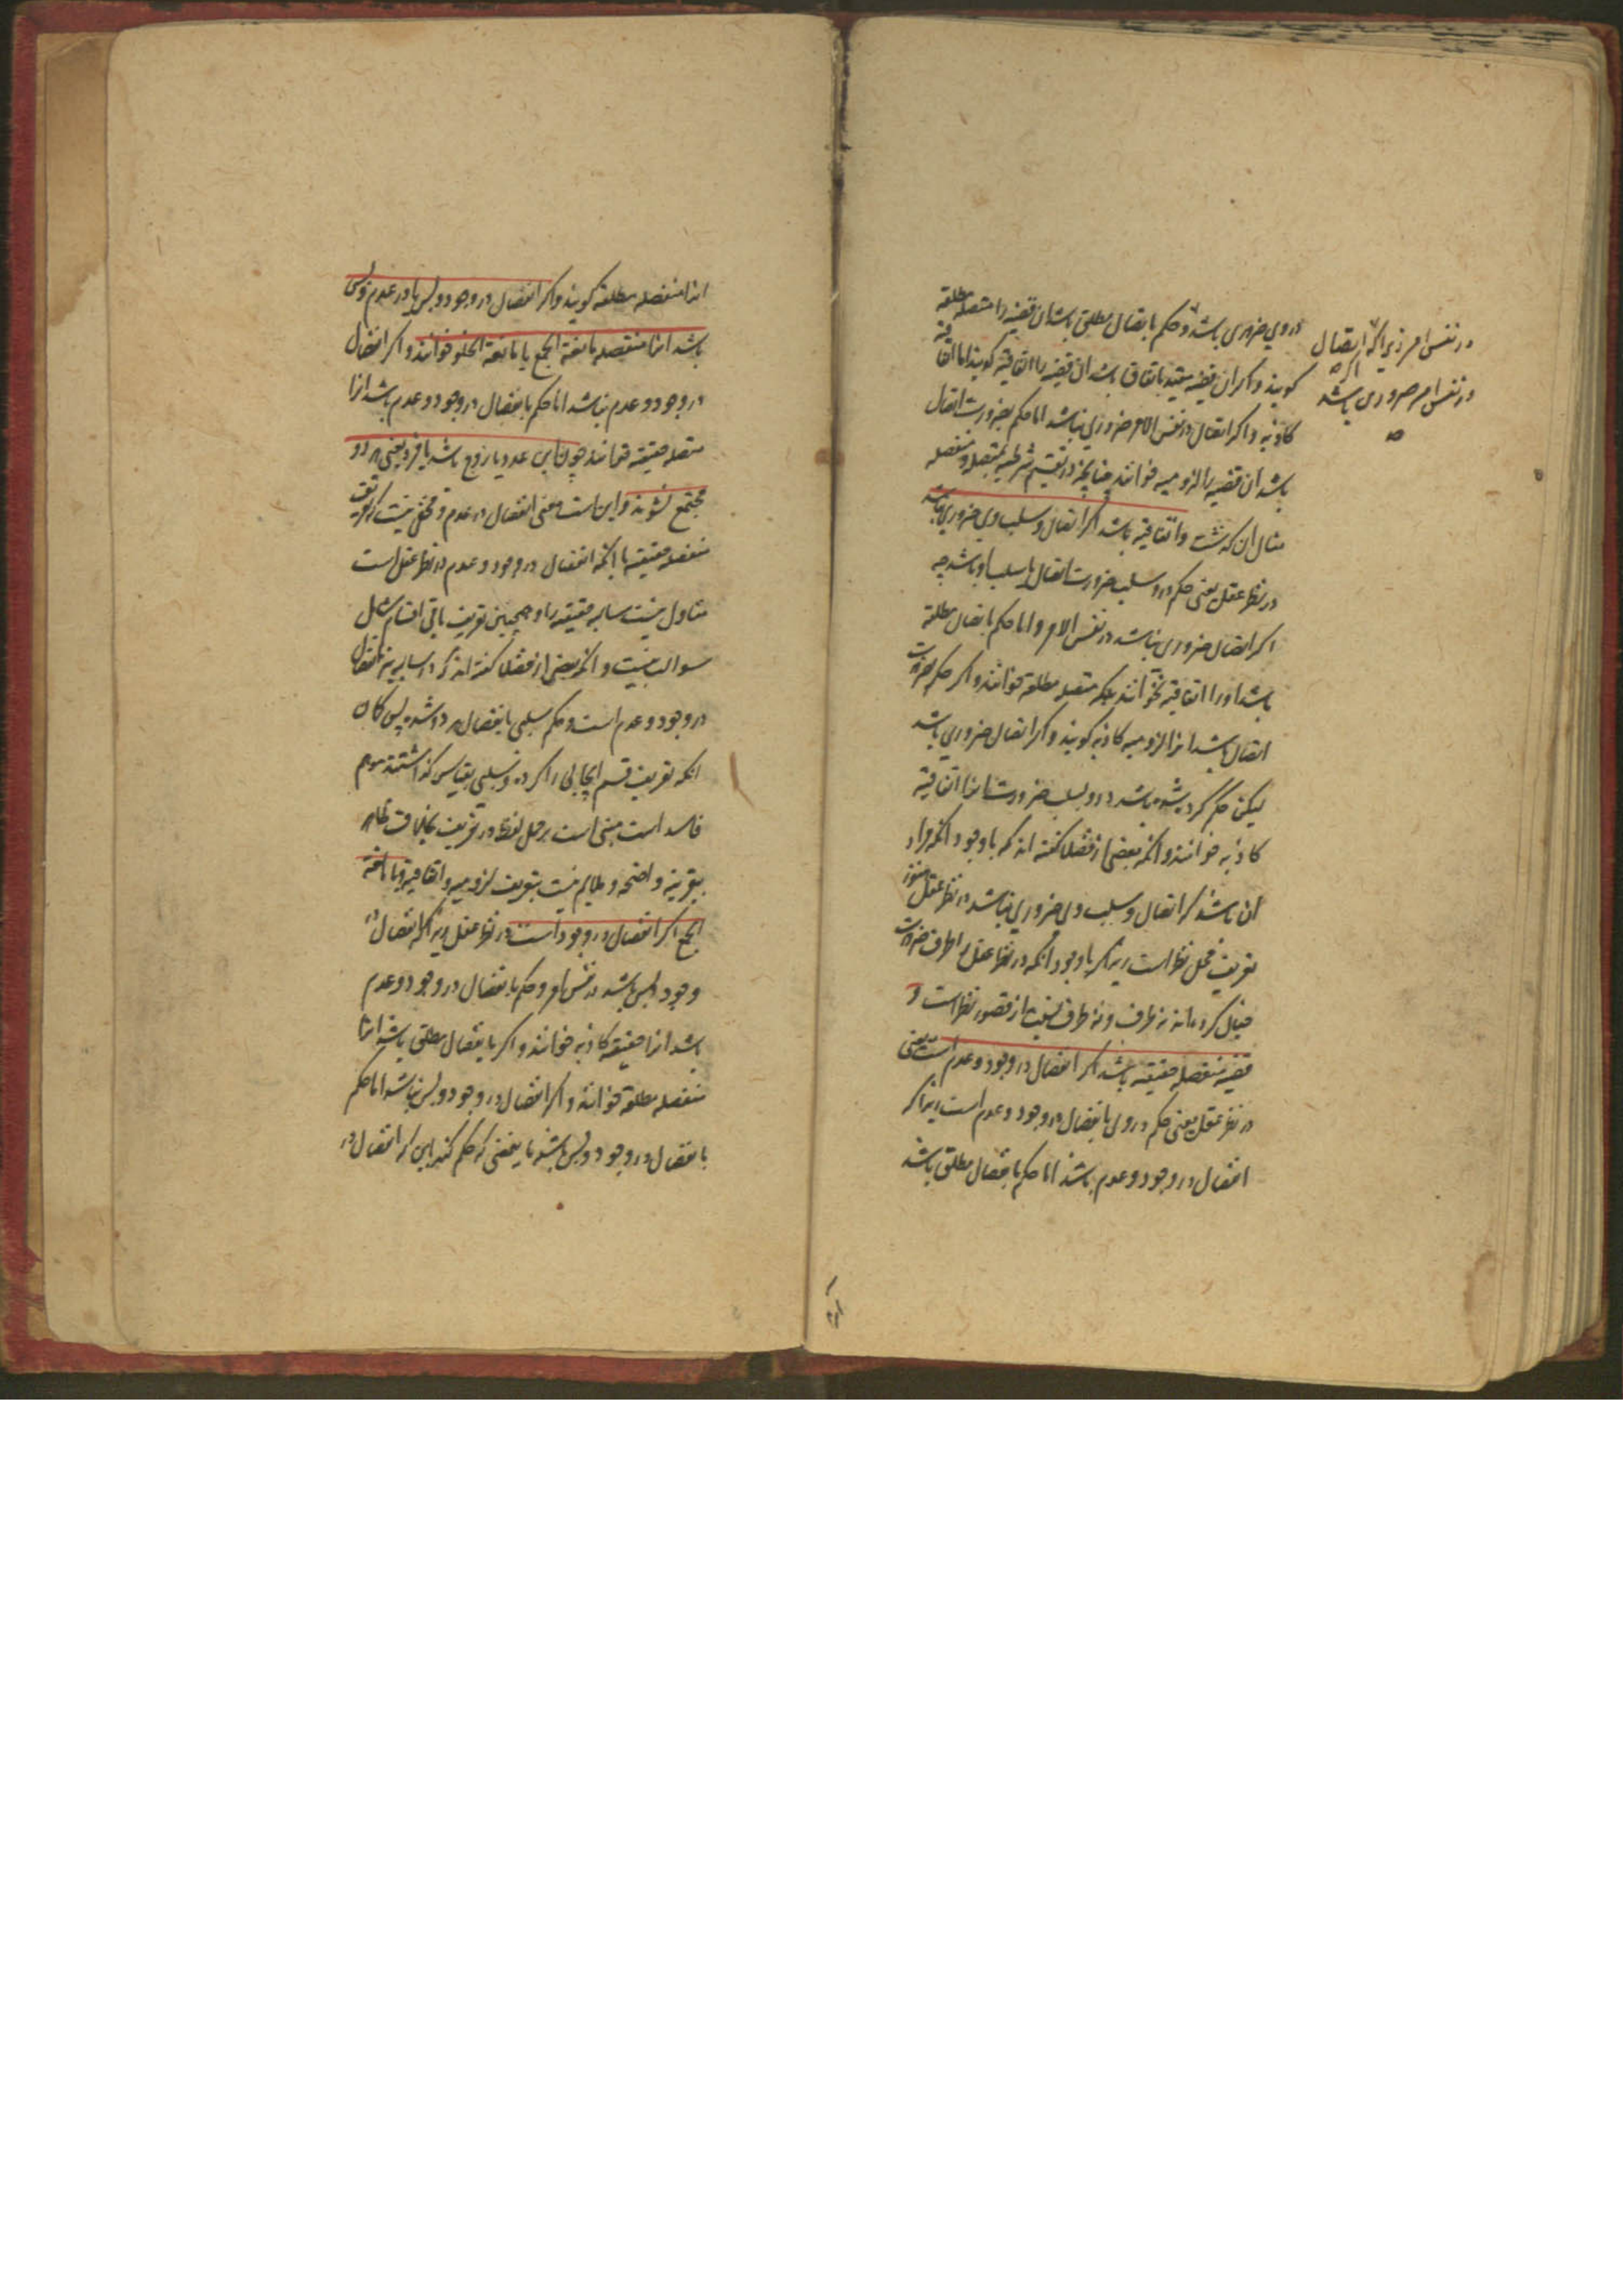 در نفس امر زیرا که اتصال
اگر
در نفس امر ضروری باشد
در وی ضروری باشد و حکم باتصال مطلق باشد ان قضیه را متصله مطلقه
کویند و اکر ان قضیه مقید باتفاق باشد ان قضیه را اتفاقیه کویند اما اتفاقیه
کاذبه و اکر اتصال در نفس الامر ضروری نباشد اما حکم بضرورت اتصال
باشد ان قضیه را لزومیه خوانند چنانچه در تقسیم شرطیه بمتصله و منفصله
مثال ان کذشت و اتفاقیه باشد اکر اتصال و سلب وی ضروری نباشد
در نظر عقل یعنی حکم در و سلب ضرورت اتصال یا سلب او باشد چه
اکر اتصال ضروری نباشد در نفس الامر و اما حکم باتصال مطلقه
باشد او را اتفاقیه نخوانند بلکه متصله مطلقه خوانند و اکر حکم بضرورت
اتصال باشد انرا لزومیه کاذبه کویند و اکر اتصال ضروری باشد
لیکن حکم کرده شده باشد در و بسلب ضرورت انرا اتفاقیه
کاذبه خوانند و انکه بعضی از فضلا کفته اند که با وجود انکه مراد
ان باشد که اتصال و سلب وی ضروری نباشد در نظر عقل هنوز
تعریف محل نظر است زیرا که با وجود انکه در نظر عقل را طرف ضرورت
خیال کرده اند نه ظرف و نه طرف نسبت از قصور نظر است و
قضیه منفصله حقیقیه باشد اکر انفصال در وجود و عدم است یعنی
در نظر عقل یعنی حکم در وی بانفصال در وجود و عدم است زیرا که
انفصال در وجود و عدم باشد اما حکم بانفصال مطلق باشد
انرا منفصله مطلقه کویند و اکر انفصال در وجود و بس یا در عدم و بس
باشد انرا منفصله مانعة الجمع یا مانعة الخلو خوانند و اکر انفصال
در وجود و عدم نباشد اما حکم بانفصال در وجود و عدم باشد انرا
حقیقیه خوانند چون این عدد یا زوج باشد یا فرد یعنی هر دو
مجتمع نشوند و این است معنی انفصال در عدم و مخفی نیست که تعریف
منفصله حقیقیه با انکه انفصال در وجود و عدم در نظر عقل است
متناول نیست سالبه حقیقیه را و همچنین تعریف باقی اقسام شامل
سوالب نیست و انکه بعضی از فضلا کفته اند که در سالبه نیز انفصال
در وجود و عدم است و حکم سلبی بانفصال
انکه تعریف قسم ایجابی را کرده و سلبی بقیاس کذاشتند موهم
فاسد است مبنی است بر حمل لفظ در تعریف بخلاف ظاهر
بیقرینه واضحه و ملایم نیست بتعریف لزومیه و اتفاقیه و مانعة
الجمع اکر انفصال در وجود است در نظر عقل زیرا که انفصال در
وجود و بس باشد در نفس امر و حکم بانفصال در وجود و عدم
باشد انرا حقیقیه کاذبه خوانند و اکر بانفصال مطلق باشد انرا
منفصله مطلقه خوانند و اکر انفصال در وجود و بس نباشد اما حکم
بانفصال در وجود و بس باشد باین معنی که حکم کنند باین که انفصال در